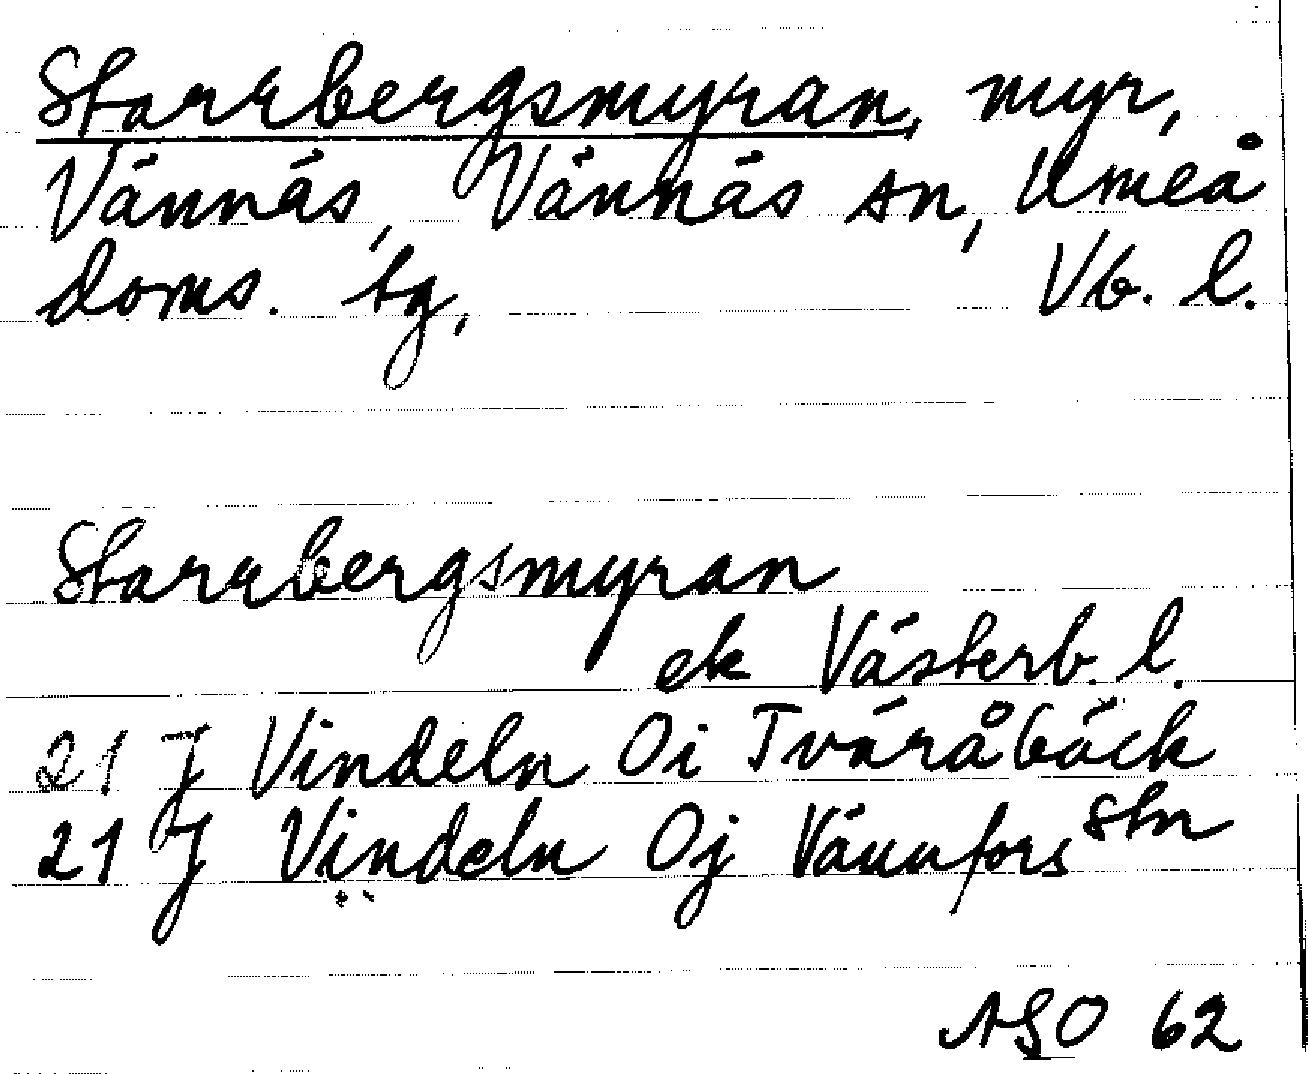 Starrbergsmyran, myr,
Vännäs, Vännäs sn, Umeå
doms. tg, Vb. l.
Starrbergsmyran
ek Västerb. l.
21 J Vindeln Oi Tväråbäck
21 J Vindeln Oj Vännfors stn
ASO 62